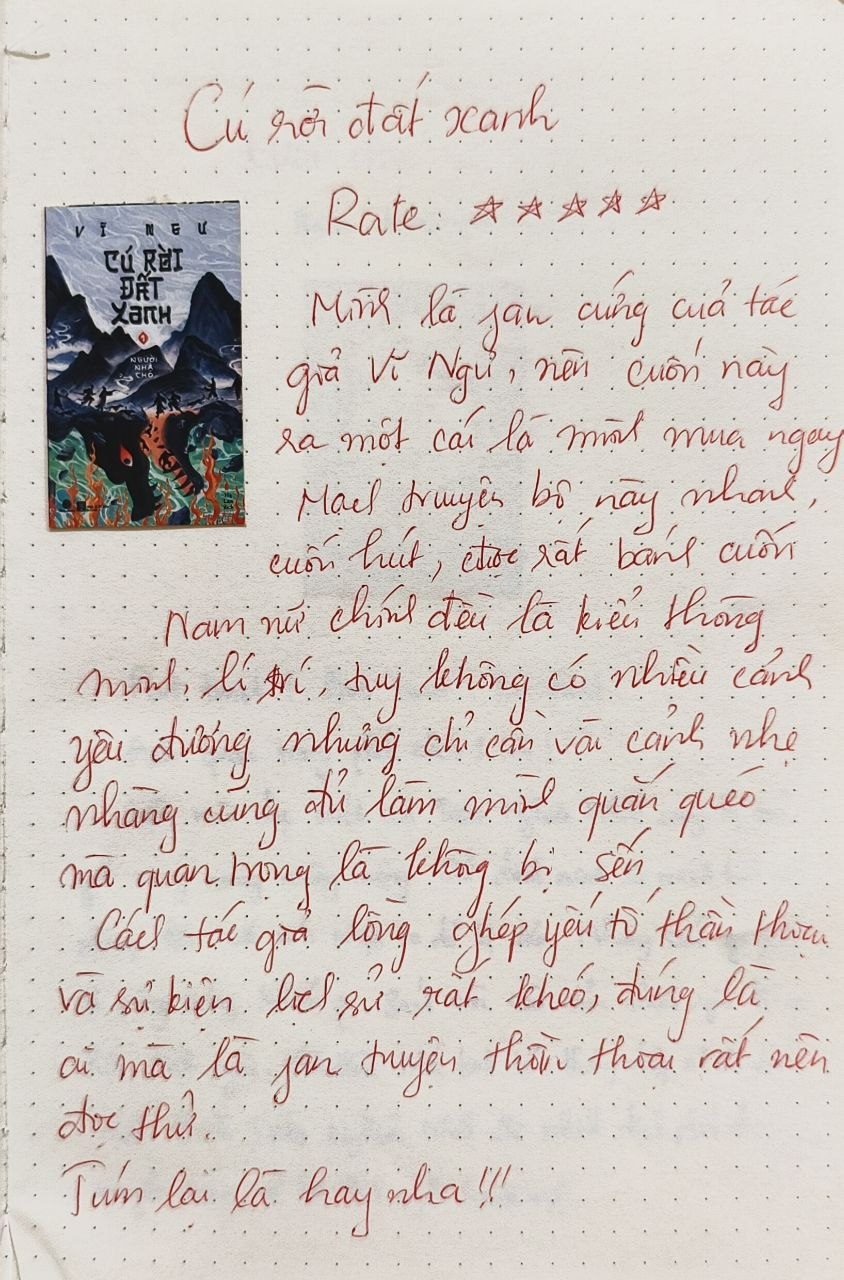 Cú rời đất xanh
Rate: ☆☆☆☆☆
VĨ NGƯ
CÚ RỜI
ĐẤT
XANH
1
NGƯỜI
NHÀ
CHÓ
Mình là fan cứng của tác
giả Vĩ Ngư, nên cuốn này
ra một cái là mình mua ngay
Mạch truyện bộ này nhanh,
cuốn hút, đọc rất bánh cuốn
Nam nữ chính đều là kiểu thông
minh, lí trí, tuy không có nhiều cảnh
yêu đương nhưng chỉ cần vài cảnh nhẹ
nhàng cũng đủ làm mình quắn quéo
mà quan trọng là không bị sến
Cách tác giả lồng ghép yếu tố thần thoại
và sự kiện lịch sử rất khéo, đúng là
ai mà là fan truyện thần thoại rất nên
đọc thử.
Túm lại là hay nha!!!